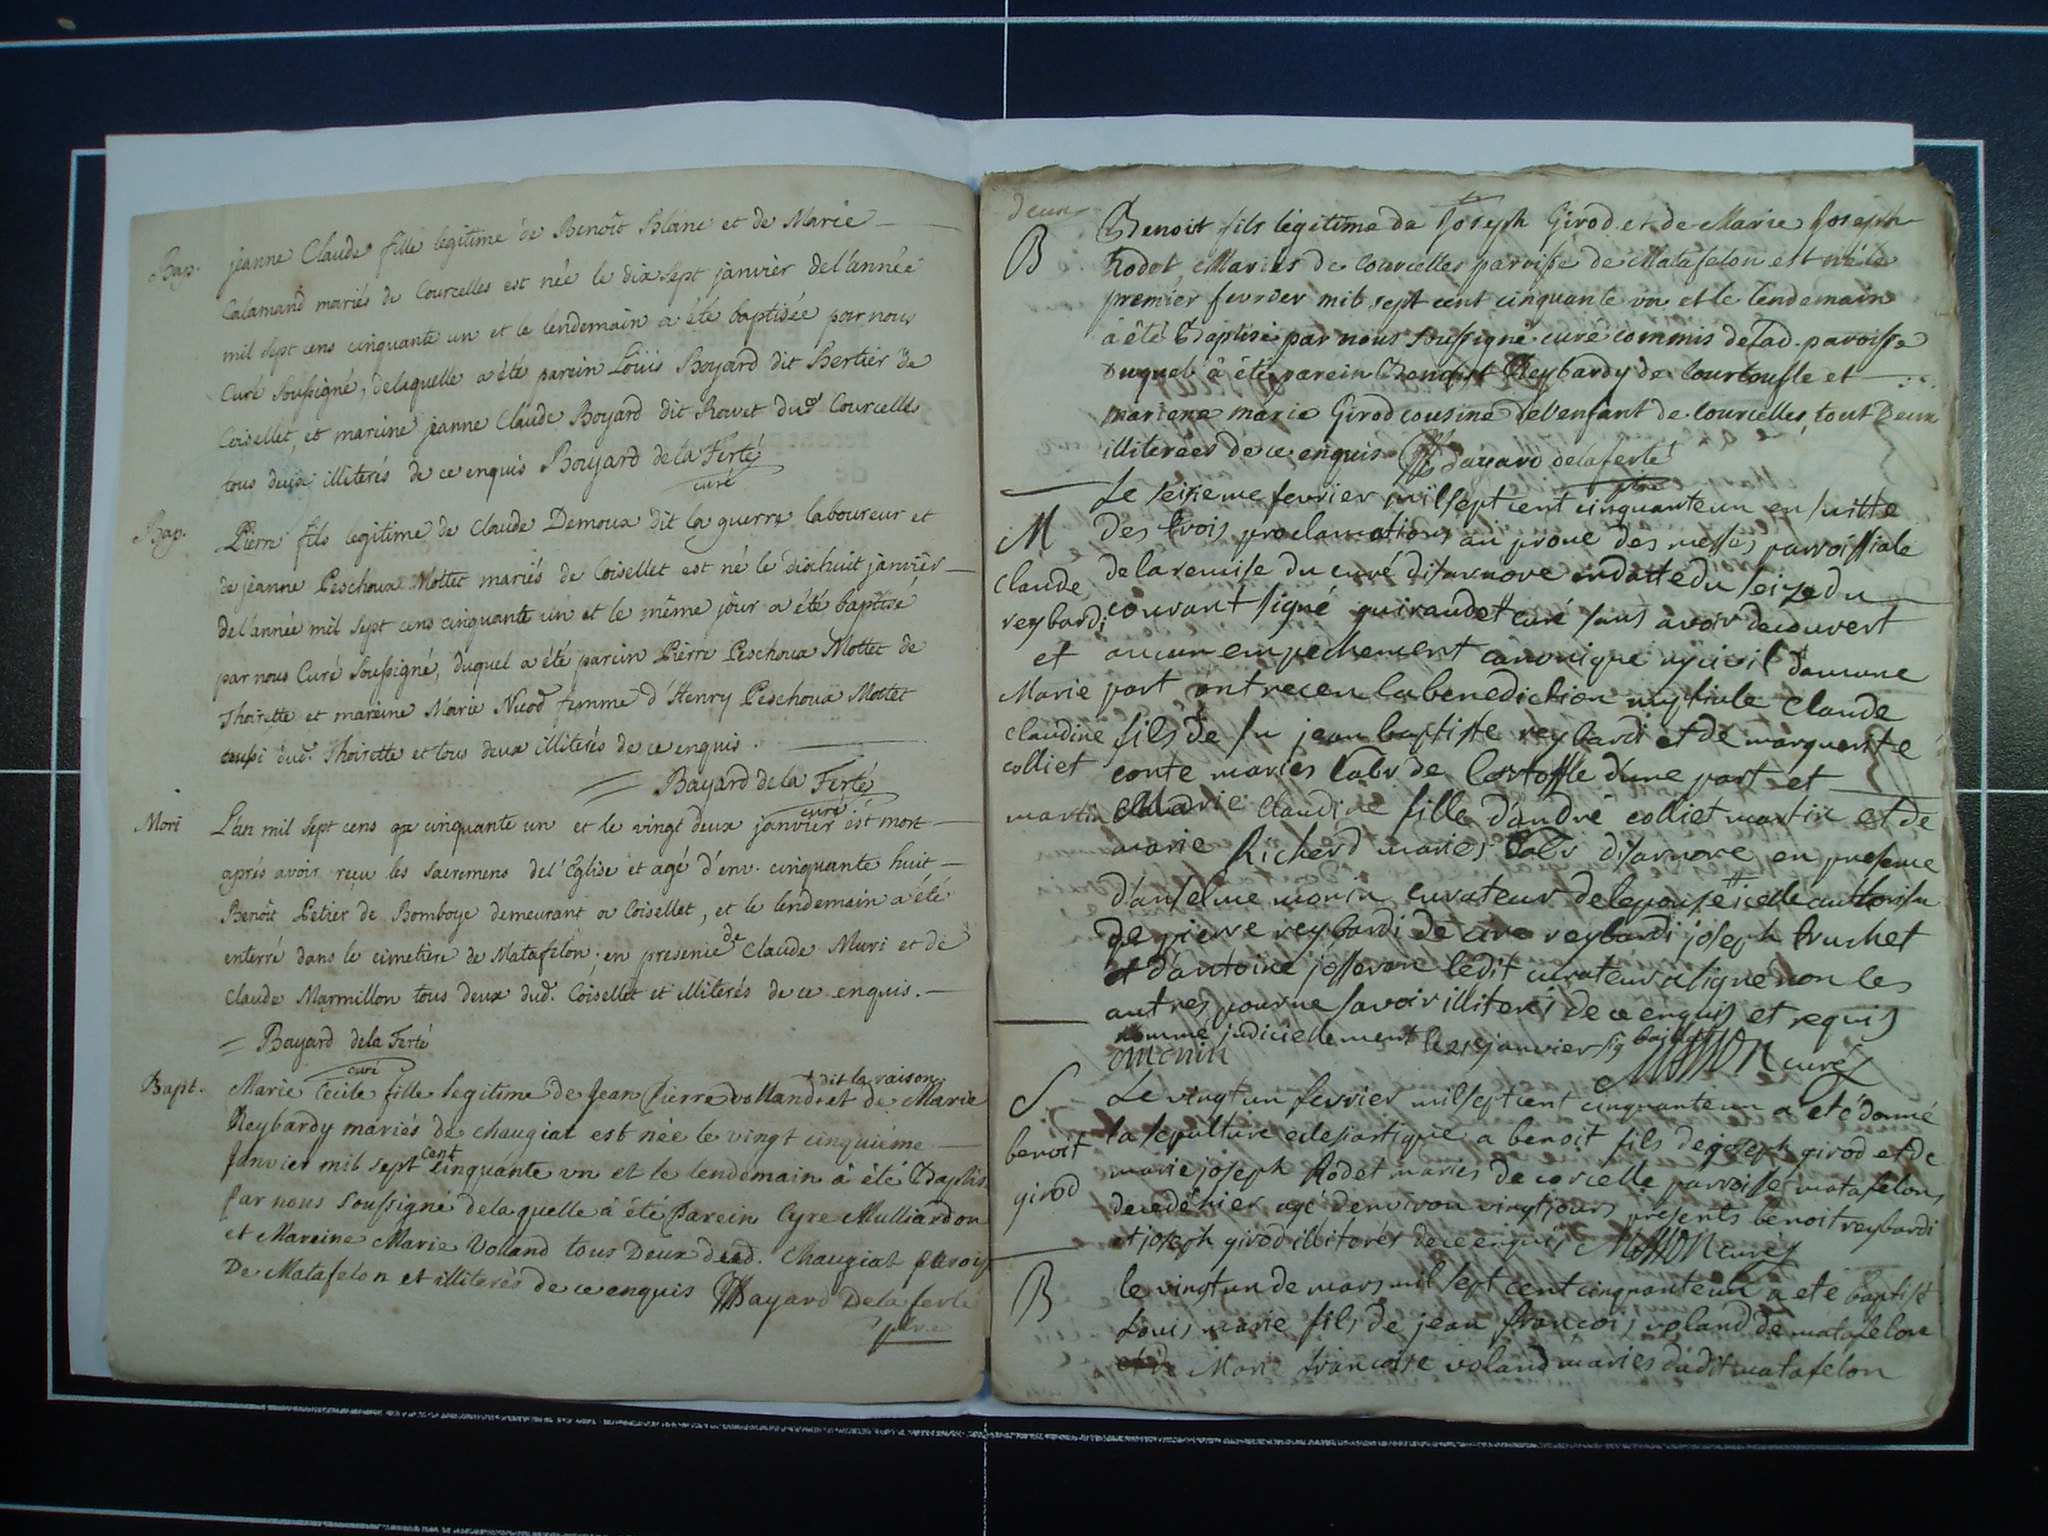 Bap. jeanne Claude fille legitime de Benoît Blanc et de Marie
Calamand mariés de Courcelles est née le dix sept janvier del'année
mil sept cens cinquante un et le lendemain a été baptisée par nous
Curé soussigné, delaquelle a été parein Loüis Boyard dit Bertier de
Coisellet, et mareine jeanne Claude Boyard dit Ravet dud. Courcelles
tous deux illiterés de ce enquis Bouyard de la Ferté
curé
Bap. Pierre fils legitime de Claude Demoux dit la guerre laboureur et
de jeanne Peschoux Mottet mariés de Coisellet est né le dixhuit janvier
del'année mil sept cens cinquante un et le même jour a été baptisé
par nous Curé soussigné, duquel a été parein Pierre Peschoux Mottet de
Thoirette et mareine Marie Nicod femme d'Henry Peschoux Mottet
aussi dud. Thoirette et tous deux illiterés de ce enquis.
Bayard de la Ferté
curé
Mort L'an mil sept cens cinquante un et le vingt deux janvier est mort
aprés avoir reçu les sacremens del'Eglise et agé d'env. cinquante huit
Benoît Petier de Bomboye demeurant a Coisellet, et le lendemain a été
enterré dans le cimetiere de Matafelon. en presence de Claude Muri et de
Claude Marmillon tous deux dud. Coisellet et illiterés de ce enquis.
Bayard dela Ferté
curé
Bapt. Marie Cecile fille legitime de Jean Pierre volland dit la raison et de Marie
Reybardy mariés de chaugiat est née le vingt cinquiéme
Janvier mil sept cent cinquante vn et le lendemain à été Baptis
par nous soussigné delaquelle à été Parein Cyre Mulliardon
et Mareine Marie Volland tous Deux dud. Chaugiat parois
De Matafelon et illiterés de ce enquis Bayard Dela ferté
ptre
deux
B Benoit fils légitime de Joseph Girod et de Marie Joseph
Rodet Mariés de Courcelles paroisse de Matafelon est né le
premier fevrier mil sept cent cinquante vn et le lendemain
à été Baptisé par nous soussigné curé commis delad. paroisse
Duquel à été parein Benoist Reybardy de Courtoufle et
mareine marie Girod cousine del'enfant de Courcelles, tout Deux
illiterées de ce enquis Bayard delaferté
ptre
M Le seizieme fevrier mil sept cent cinquante un en suitte
des trois proclamations au prone des messes parroissiale
claude de la remise du curé disarnore en datte du seize du
reybardi courant signé guiraudet curé sans avoir decouvert
et aucun empechement canonique ny civil d'aucune
Marie part ont receu la benediction nuptiale Claude
claudine fils de fu jean baptiste reybardi et de marguerite
colliet conte mariés labr de Cortoffle d'une part et
martin Marie claudine fille d'andré colliet martin et de
marie Richerd mariés labr disarnore en presence
d'anselme monin curateur de lepouse icelle authorisée
de pierre reybardi de cire reybardi joseph truchet
et d'antoine jesseron ledit curateur a signé non les
autres pour ne savoir illiterés de ce enquis et requis
nommé judiciellement le 21e janvier sig
monin MASSON curé
S Le vingt un fevrier mil sept cent cinquante un a eté donné
benoit la sepulture eclesiastique a benoit fils de joseph girod et de
girod marie joseph Rodet mariés de corcelle parroisse matafelon
decedé hier agé denviron vingt jours presents benoit reybardi
et joseph girod illiterés de ce enquis MASSON curé
B le vingt un de mars mil sept cent cinquante un a eté baptisé
Louis marie fils de jean françois voland de matafelon
et de Marie françoise voland mariés dudit matafelon